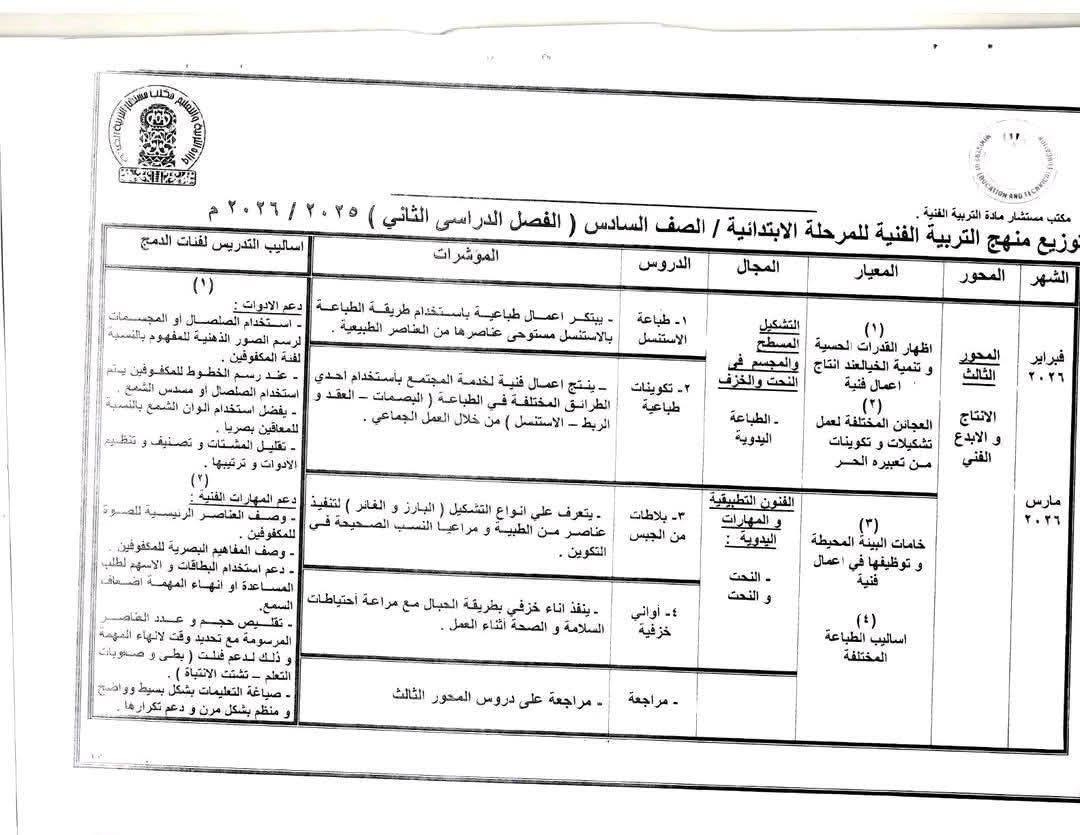 وزارة التربية والتعليم مكتب مستشار التربية الفنية
MINISTRY OF EDUCATION AND TECHNICAL EDUCATION
مكتب مستشار مادة التربية الفنية .
توزيع منهج التربية الفنية للمرحلة الابتدائية / الصف السادس ( الفصل الدراسى الثاني ) ٢٠٢٥ / ٢٠٢٦ م
الشهر
المحور
المعيار
المجال
الدروس
الموشرات
اساليب التدريس لفئات الدمج
فبراير
٢٠٢٦
مارس
٢٠٢٦
المحور
الثالث
الانتاج
و الابدع
الفني
(١)
اظهار القدرات الحسية
و تنمية الخيالعند انتاج
اعمال فنية
(٢)
العجائن المختلفة لعمل
تشكيلات و تكوينات
من تعبيره الحر
(٣)
خامات البيئة المحيطة
و توظيفها في اعمال
فنية
(٤)
اساليب الطباعة
المختلفة
التشكيل
المسطح
والمجسم فى
النحت والخزف
- الطباعة
اليدوية
الفنون التطبيقية
و المهارات
اليدوية :
- النحت
و النحت
١- طباعة
الاستنسل
- يبتكر اعمال طباعية بأستخدام طريقة الطباعة
بالاستنسل مستوحى عناصرها من العناصر الطبيعية .
٢- تكوينات
طباعية
- ينتج اعمال فنية لخدمة المجتمع بأستخدام أحدي
الطرائق المختلفة في الطباعة ( البصمات – العقد و
الربط – الاستنسل ) من خلال العمل الجماعي .
٣- بلاطات
من الجبس
- يتعرف علي انواع التشكيل ( البارز و الغائر ) لتنفيذ
عناصر من الطبية و مراعيا النسب الصحيحة فى
التكوين .
٤- أواني
خزفية
- ينفذ اناء خزفي بطريقة الحبال مع مراعة أحتياطات
السلامة و الصحة أثناء العمل .
- مراجعة
- مراجعة على دروس المحور الثالث
(١)
دعم الادوات :
- استخدام الصلصال او المجسمات
لرسم الصور الذهنية للمفهوم بالنسبة
لفئة المكفوفين .
- عند رسم الخطوط للمكفوفين يتم
استخدام الصلصال او مسدس الشمع .
- يفضل استخدام الوان الشمع بالنسبة
للمعاقين بصريا .
- تقليل المشتات و تصنيف و تنظيم
الادوات و ترتيبها .
(٢)
دعم المهارات الفنية :
- وصف العناصر الرئيسية للصورة
للمكفوفين .
- وصف المفاهيم البصرية للمكفوفين .
- دعم استخدام البطاقات و الاسهم لطلب
المساعدة او انهاء المهمة لضعاف
السمع.
- تقليص حجم و عدد العناصر
المرسومة مع تحديد وقت لانهاء المهمة
و ذلك لدعم فئات ( بطى و صعوبات
التعلم – تشتت الانتباة ) .
- صياغة التعليمات بشكل بسيط وواضح
و منظم بشكل مرن و دعم تكرارها .